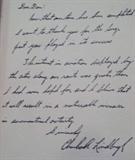 Dear Dan:
Now that our tour has been completed
I want to thank you for the large
part you played in its success.
The interest in aviation displayed by
the cities along our route was greater than
I had even hoped for and I believe that
it will result in a noticeable increase
in aeronautical activity.
Sincerely,
Charles A. Lindbergh